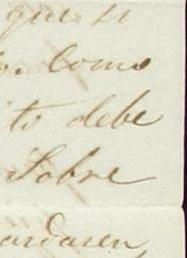 que si
o. Como
ito debe
Sobre
ardasen